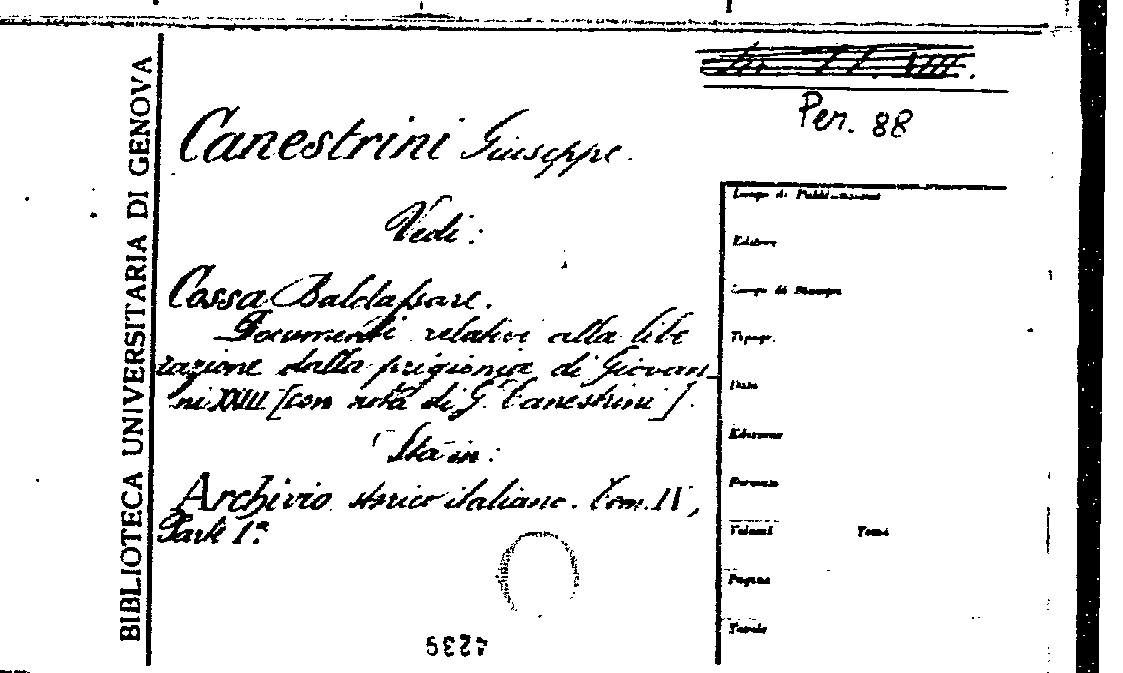 BIBLIOTECA UNIVERSITARIA DI GENOVA
Per. 88
Canestrini Giuseppe.
Vedi:
Cossa Baldassare.
Documenti relativi alla libe
razione dalla prigionia di Giovan
ni XXIII [con nota di G. Canestrini].
Sta in:
Archivio storico italiano. Tom. IV,
Parte 1ª.
4239
Luogo di Pubblicazione
Editore
Luogo di Stampa
Tipogr.
Data
Edizione
Formato
Volumi Tomi
Pagine
Tavole